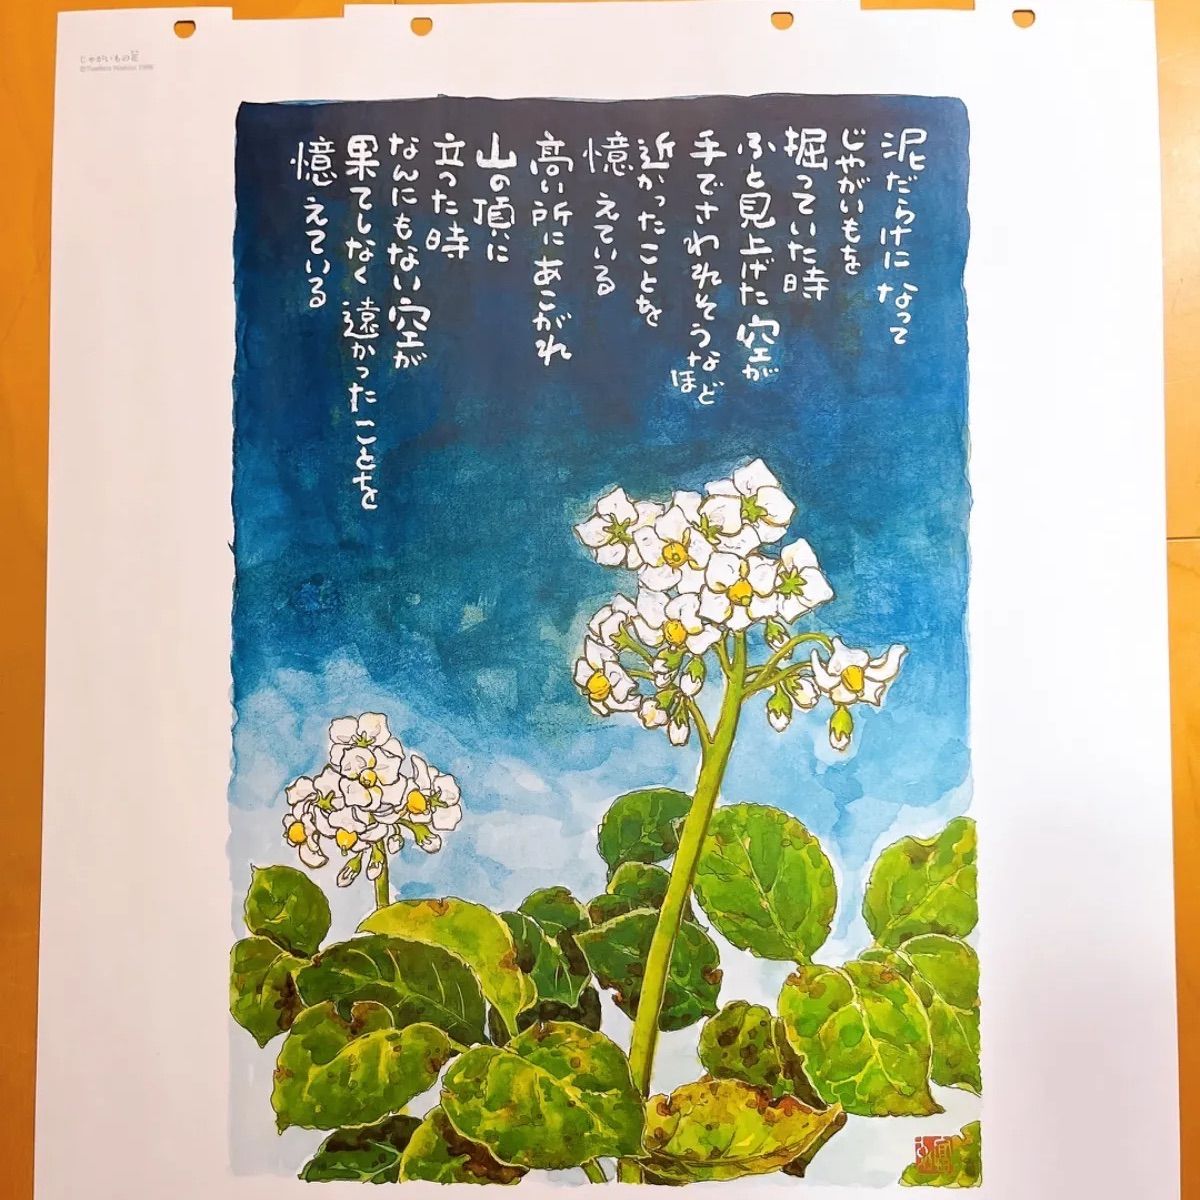 じゃがいもの花
泥だらけになって
じゃがいもを
掘っていた時
ふと見上げた空が
手でさわれそうなほど
近かったことを
憶えている
高い所にあこがれ
山の頂に
立った時
なんにもない空が
果てしなく遠かったことを
憶えている